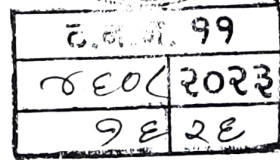 ट.न.न. ११
४६०८ २०२३
१६ २६